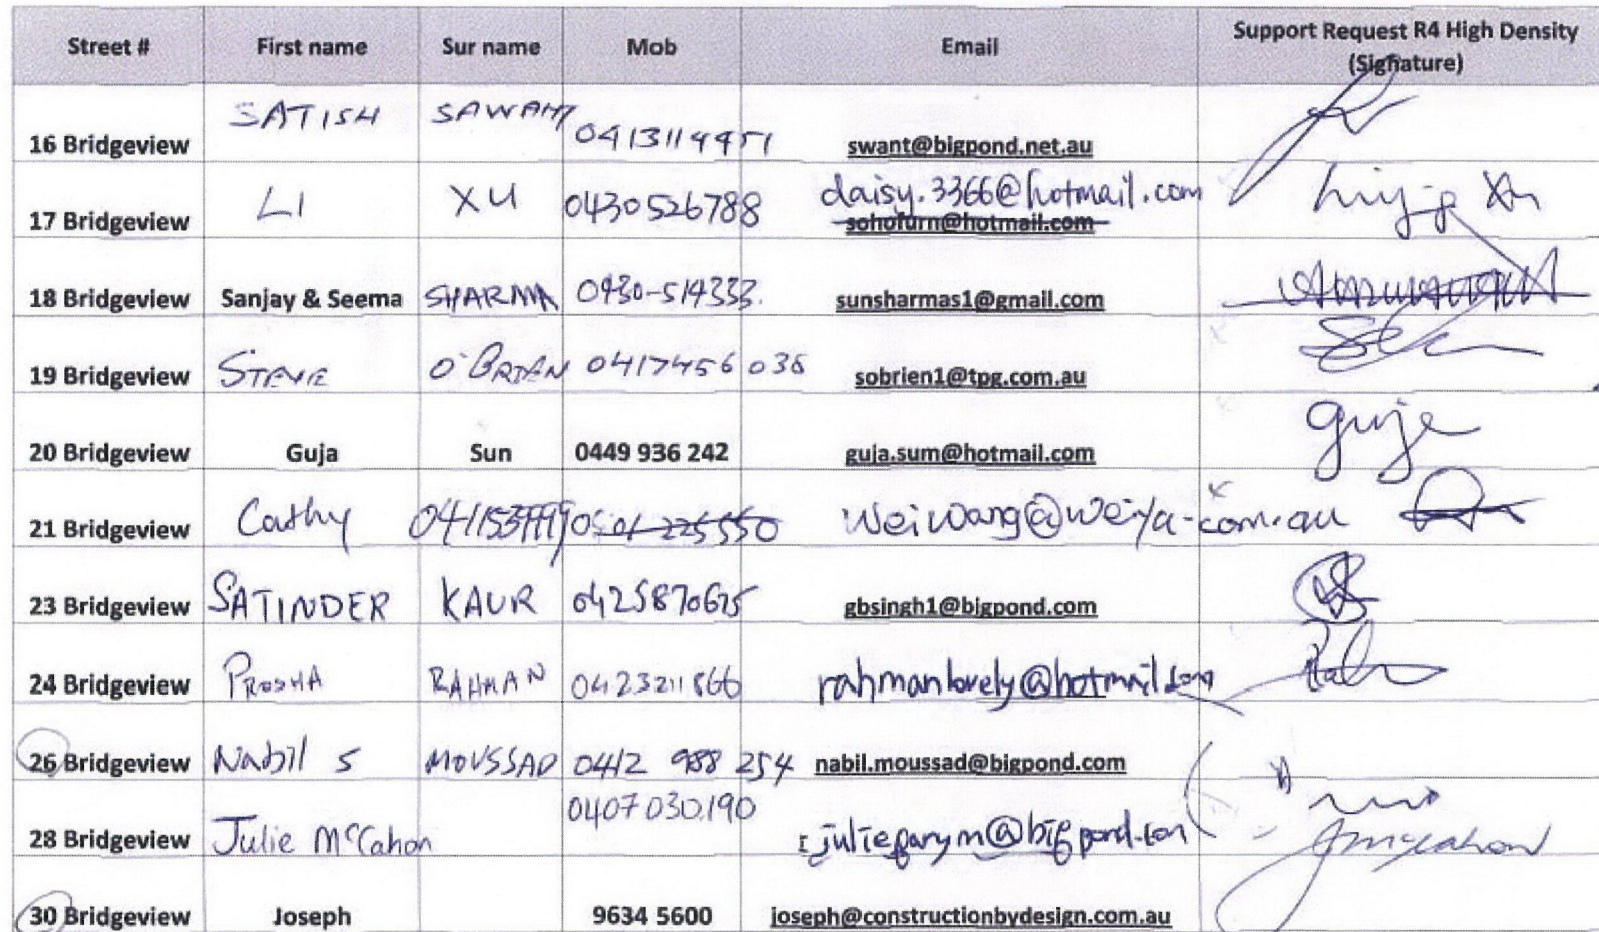 Street # First name Sur name Mob Email Support Request R4 High Density
(Signature)
16 Bridgeview SATISH swant@bigpond.net.au
17 Bridgeview LI XU 0430526788 daisy.3366@hotmail.com
sohofurn@hotmail.com
18 Bridgeview Sanjay & Seema SHARMA 0430-514333. sunsharmas1@gmail.com
19 Bridgeview STEVE O'BRIEN 0417456 036 sobrien1@tpg.com.au
20 Bridgeview Guja Sun 0449 936 242 guja.sum@hotmail.com guja
21 Bridgeview Cathy weiwang@weiya.com.au
23 Bridgeview SATINDER KAUR gbsingh1@bigpond.com
24 Bridgeview RAHMAN 0423211866 rahmanlovely@hotmail.com
26 Bridgeview Nabil S MOUSSAD 0412 988 254 nabil.moussad@bigpond.com
28 Bridgeview Julie McCahon 0407 030.190
30 Bridgeview Joseph 9634 5600 joseph@constructionbydesign.com.au